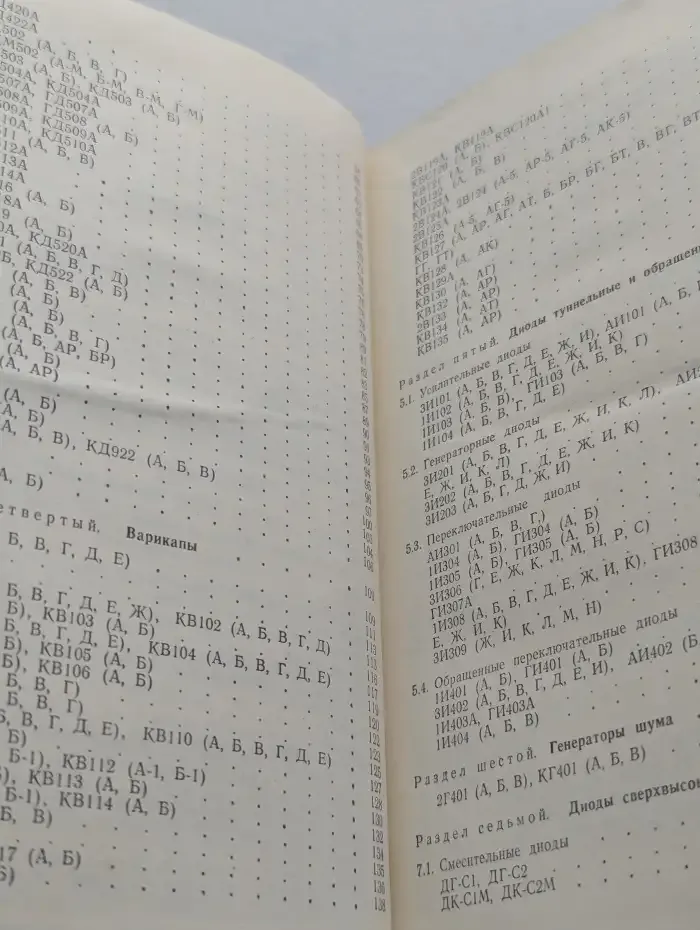 Д420А
Д422А
502 (А, Б, В, Г)
М502 (А-М, Б-М, В-М, Г-М)
503 (А, Б) КД503 (А, Б)
504А, КД504А
507А, ГД507А
508А, ГД508 (А, Б)
509А, КД509А
510А, КД510А
511 (А, Б, В)
512А
13А
14А
16 (А, Б)
18А
19 (А, Б)
0А, КД520А
1 (А, Б, В, Г, Д)
2Б, КД522 (А, Б)
(А, Б, В)
(А, Б)
(А, Б)
(А, Б, В, Г)
(А, Б, АР, БР)
(А, Б)
(А, АР)
(А, Б)
(А, Б)
(А, Б, В), КД922 (А, Б, В)
А, Б)
етвертый. Варикапы
Б, В, Г, Д, Е)
Б, В, Г, Д, Е, Ж), КВ102 (А, Б, В, Г, Д)
Б), КВ103 (А, Б)
Б, В, Г, Д, Е), КВ104 (А, Б, В, Г, Д, Е)
Б), КВ105 (А, Б)
Б), КВ106 (А, Б)
Б, В, Г)
Б, В, Г)
Б, В, Г, Д, Е), КВ110 (А, Б, В, Г, Д, Е)
Б)
Б-1), КВ112 (А-1, Б-1)
), КВ113 (А, Б)
Б-1), КВ114 (А, Б)
Б, В)
17 (А, Б)
Б)
81
82
83
85
87
88
90
93
94
95
96
97
100
103
104
106
108
109
111
113
115
116
117
119
120
122
123
125
127
128
130
132
134
135
136
138
2В119А, КВ119А
КВС120 (А, Б), КВС120А1
КВ121 (А, Б)
КВ122 (А, Б, В)
КВ123А
2В124А, 2В124 (А-5, АР-5, АГ-5, АК-5)
2В125А
КВ126 (А-5, АГ-5)
КВ127 (А, АР, АГ, АТ, Б, БР, БГ, БТ, В, ВГ, ВТ
ГГ, ГТ)
КВ128 (А, АК)
КВ129А
КВ130 (А, АГ)
КВ132 (А, АР)
2В133 (А, АР)
КВ134 (А, АТ)
КВ135 (А, АР)
Раздел пятый. Диоды туннельные и обращен
5.1. Усилительные диоды
3И101 (А, Б, В, Г, Д, Е, Ж, И), АИ101 (А, Б, В
1И102 (А, Б, В, Г, Д, Е, Ж, И, К)
1И103 (А, Б, В), ГИ103 (А, Б, В, Г)
1И104 (А, Б, В, Г, Д, Е)
5.2. Генераторные диоды
3И201 (А, Б, В, Г, Д, Е, Ж, И, К, Л), АИ
Е, Ж, И, К, Л)
3И202 (А, Б, В, Г, Д, Е, Ж, И, К)
3И203 (А, Б, Г, Д, Ж, И)
5.3. Переключательные диоды
АИ301 (А, Б, В, Г)
1И304 (А, Б), ГИ304 (А, Б)
1И305 (А, Б), ГИ305 (А, Б)
3И306 (Г, Е, Ж, К, Л, М, Н, Р, С)
ГИ307А
1И308 (А, Б, В, Г, Д, Е, Ж, И, К), ГИ308
Е, Ж, И, К)
3И309 (Ж, И, К, Л, М, Н)
5.4. Обращенные переключательные диоды
1И401 (А, Б), ГИ401 (А, Б)
3И402 (А, Б, В, Г, Д, Е, И), АИ402 (Б
1И403А, ГИ403А
1И404 (А, Б, В)
Раздел шестой. Генераторы шума
2Г401 (А, Б, В), КГ401 (А, Б, В)
Раздел седьмой. Диоды сверхвысок
7.1. Смесительные диоды
ДГ-С1, ДГ-С2
ДК-С1М, ДК-С2М